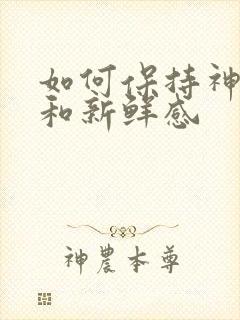 如何保持神
和新鲜感
神農本尊